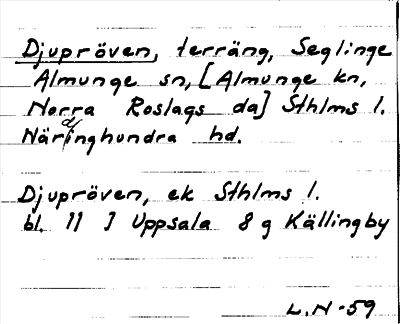 Djupröven, terräng, Seglinge
Almunge sn, [Almunge kn,
Norra Roslags da] Sthlms l.
Närdinghundra hd.
Djupröven, ek Sthlms l.
bl. 11 I Uppsala 8 g Källingby
L.N-59